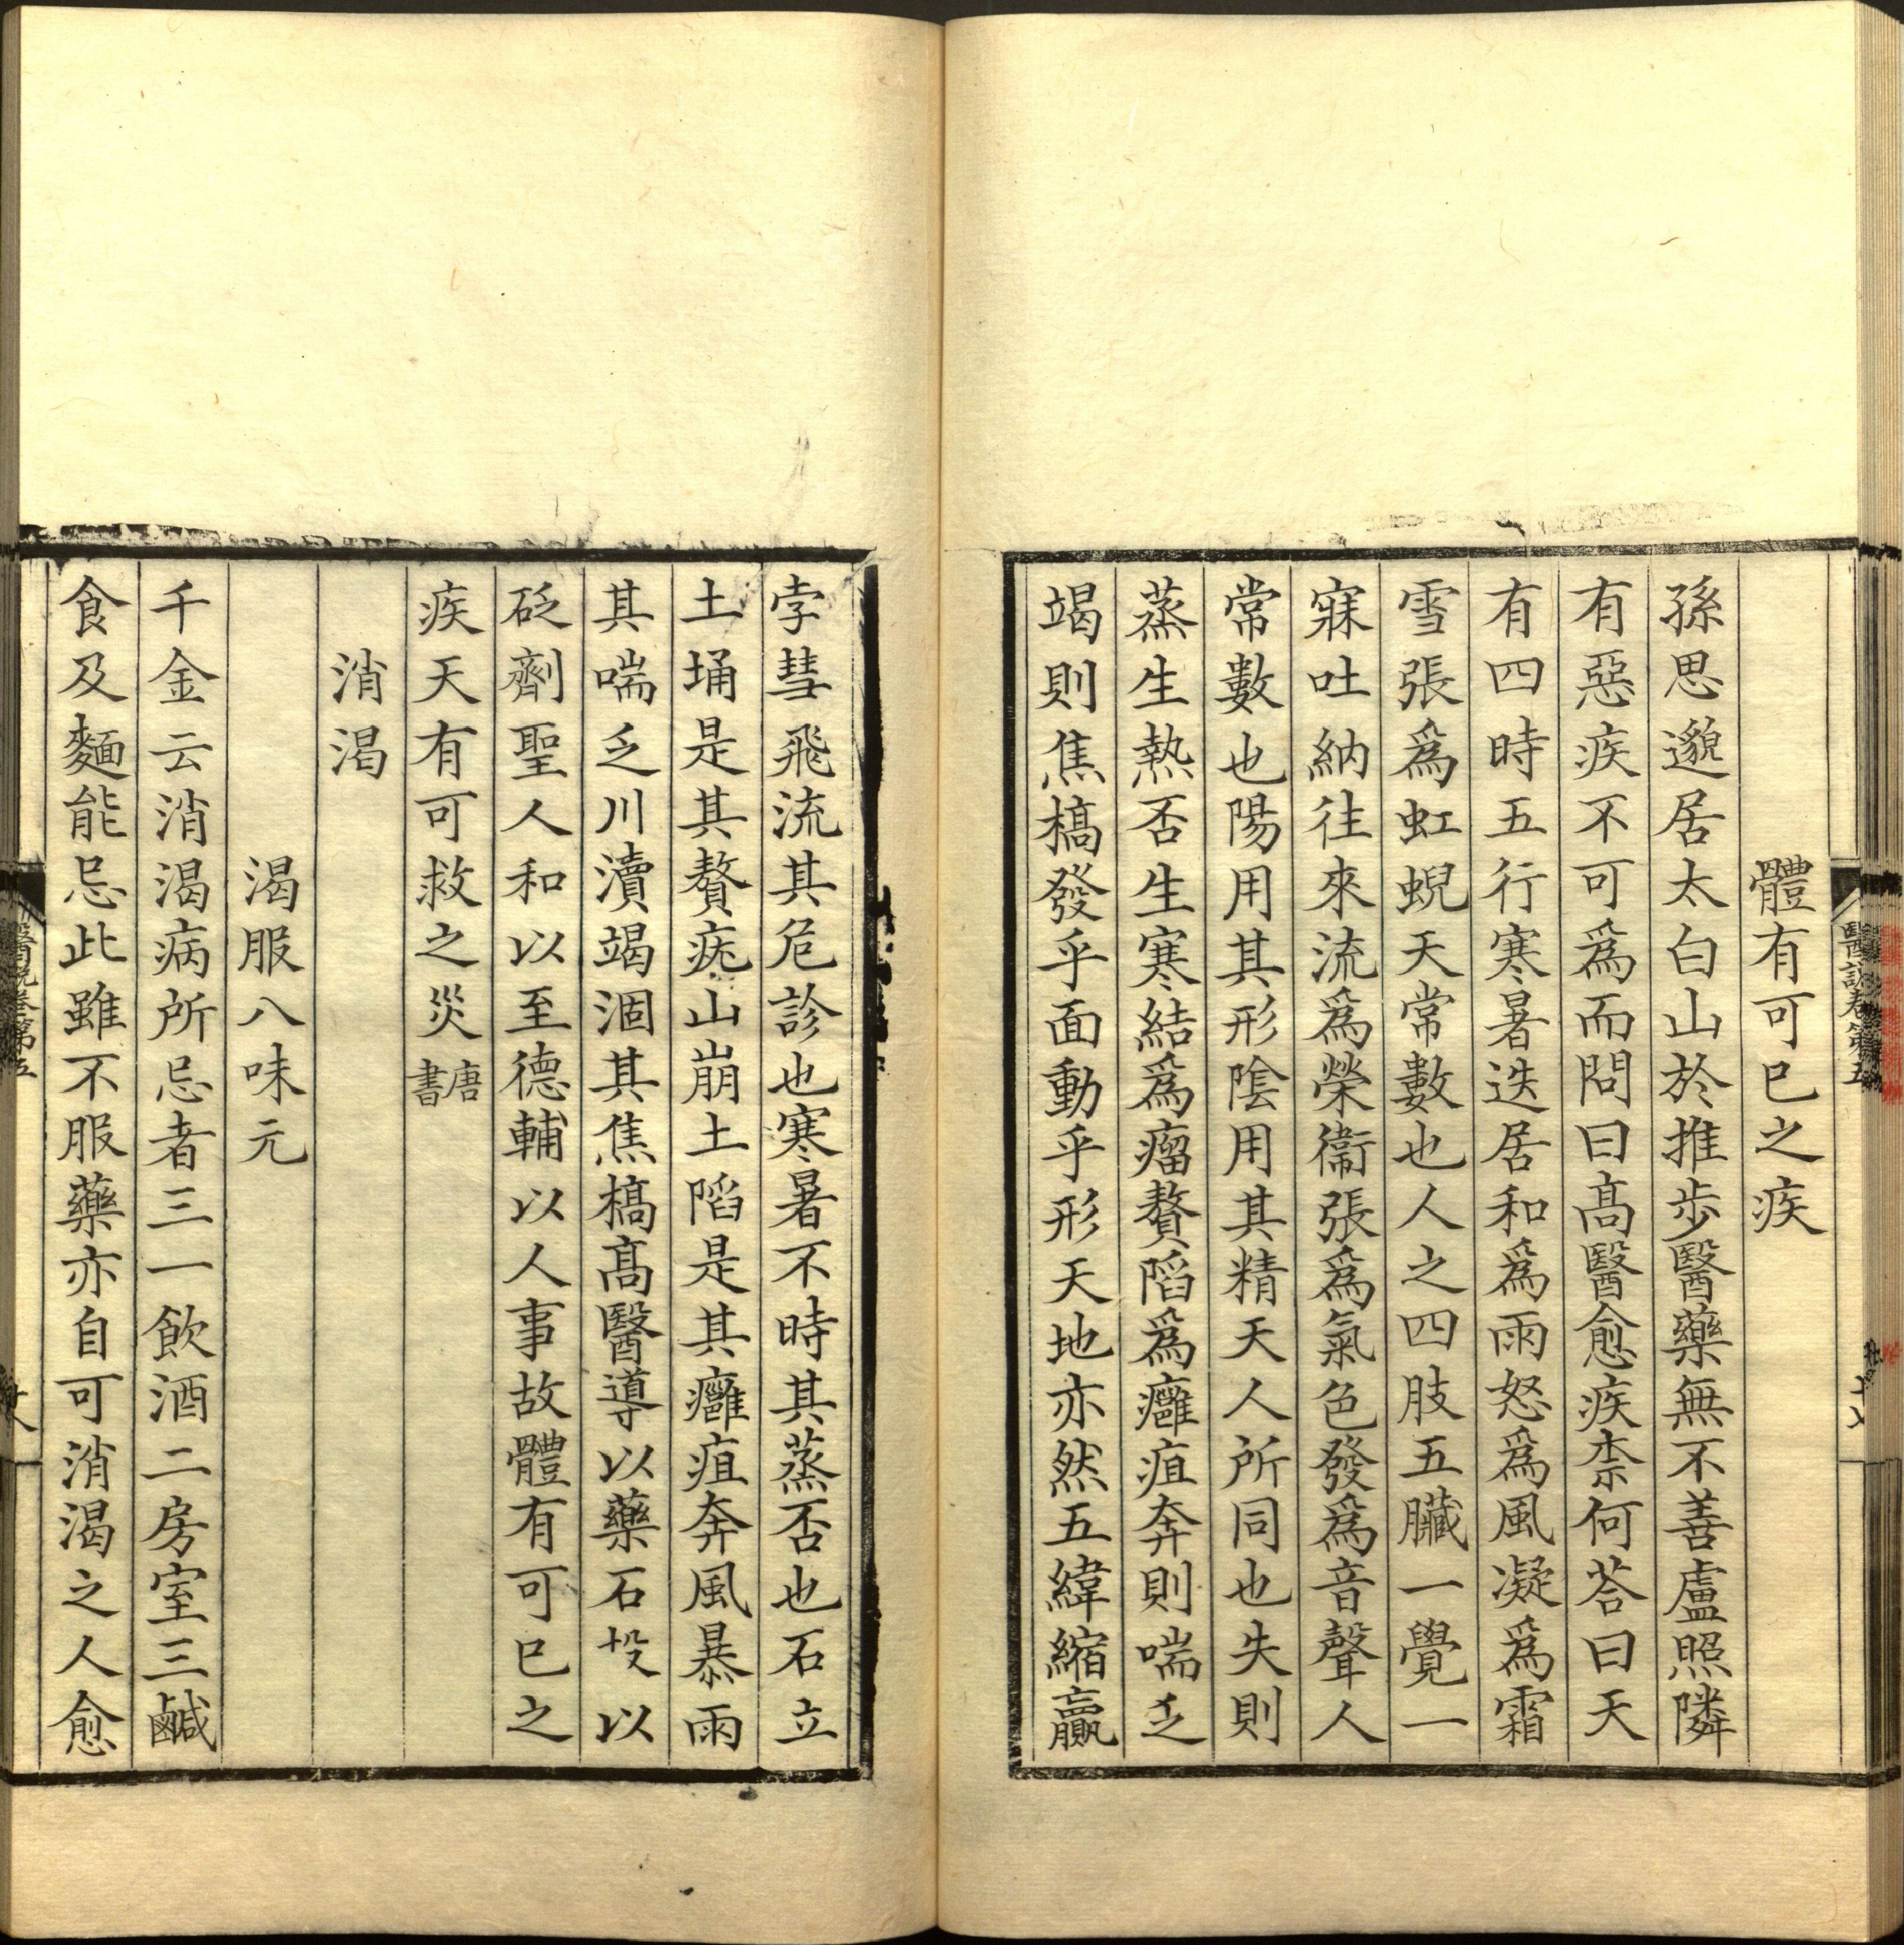 體有可已之疾
孫思邈居太白山於推步醫藥無不善盧照隣
有惡疾不可爲而問曰髙醫愈疾柰何荅曰天
有四時五行寒暑迭居和爲雨怒爲風凝爲霜
雪張爲虹蜺天常數也人之四肢五臟一覺一
寐吐納往來流爲榮衞張爲氣色發爲音聲人
常數也陽用其形隂用其精天人所同也失則
蒸生熱否生寒結爲瘤贅陷爲癰疽奔則喘乏
竭則焦槁發乎面動乎形天地亦然五緯縮贏
孛彗飛流其危診也寒暑不時其蒸否也石立
土埇是其贅疣山崩土陷是其癰疽奔風暴雨
其喘乏川瀆竭涸其焦槁髙醫導以藥石投以
砭劑聖人和以至德輔以人事故體有可已之
疾天有可救之災唐書
消渴
渴服八味元
千金云消渴病所忌者三一飲酒二房室三鹹
食及麵能忌此雖不服藥亦自可消渴之人愈
醫說卷第五